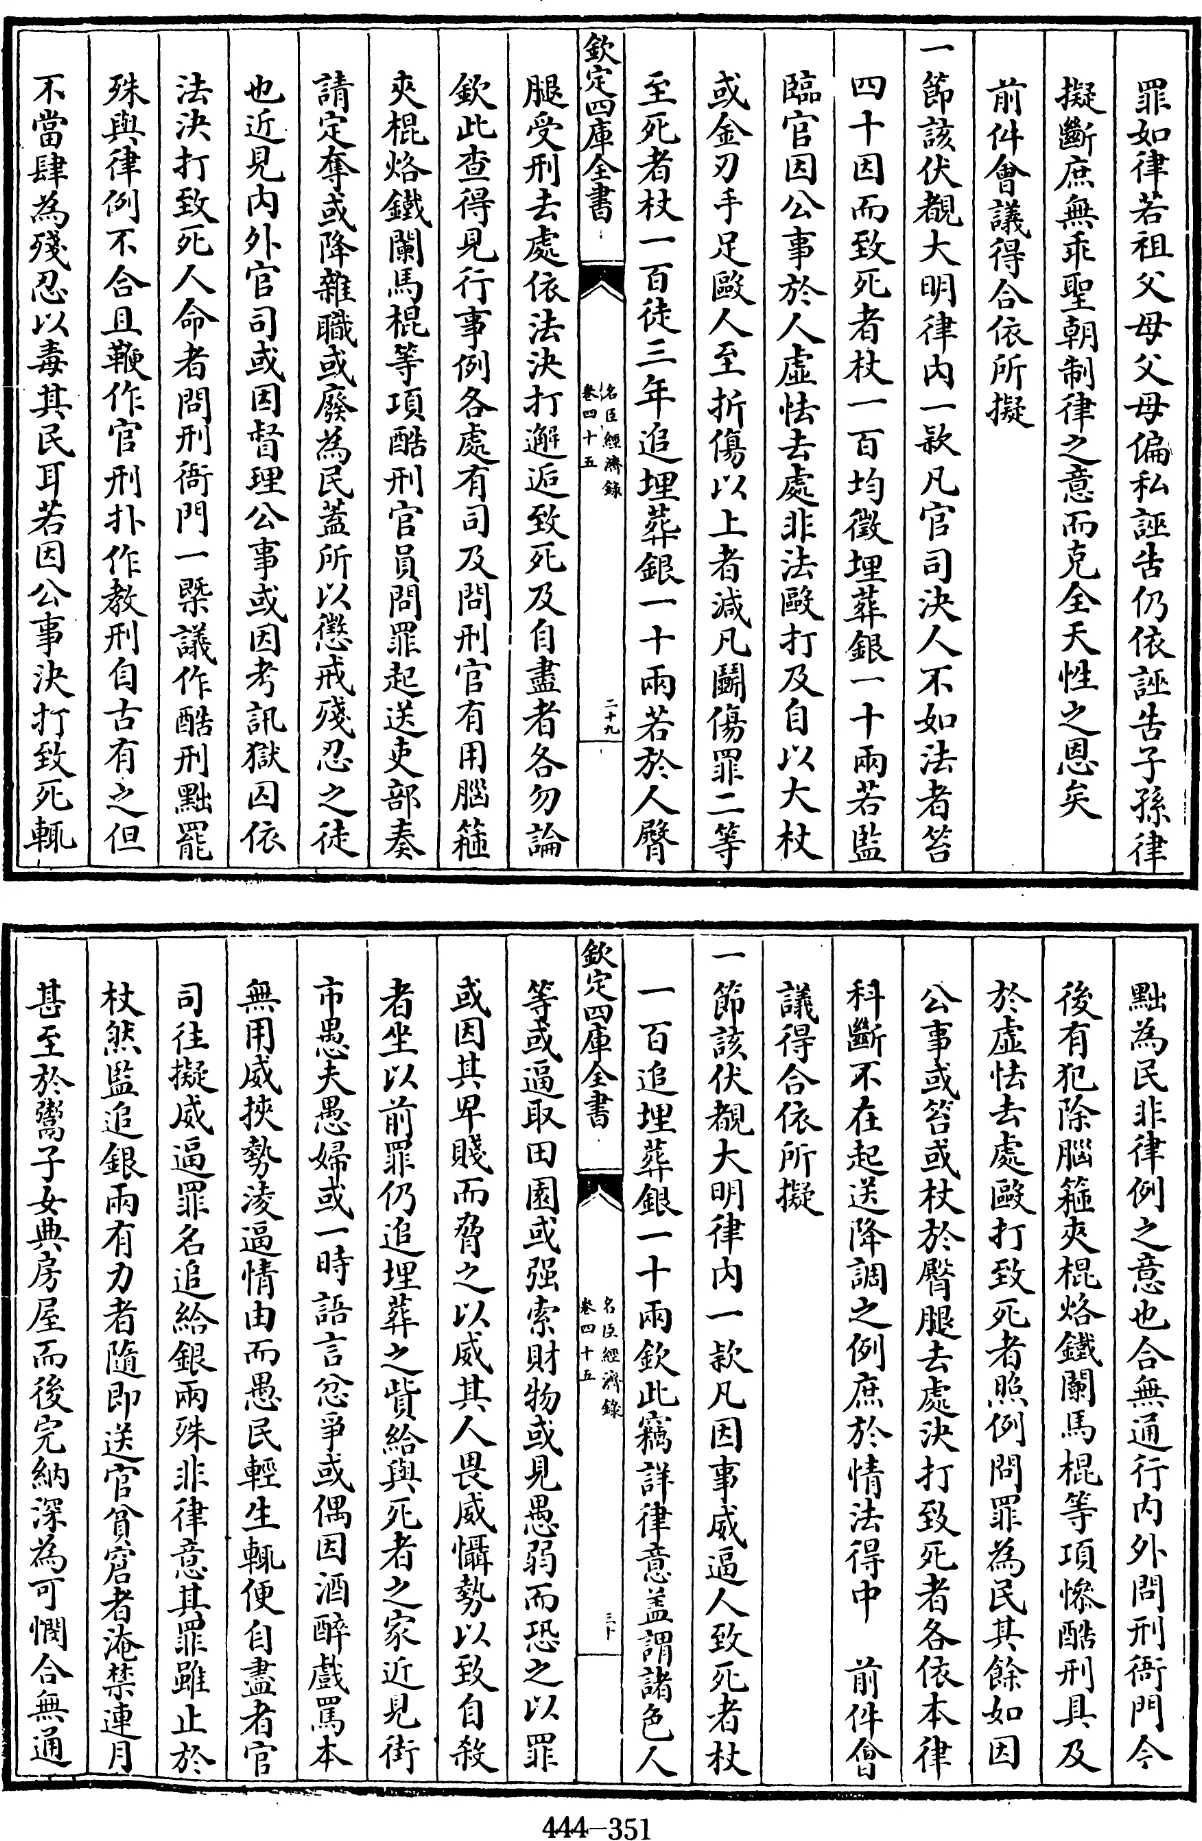 罪如律若祖父母父母偏私誣告仍依誣告子孫律
擬斷庶無乖聖朝制律之意而克全天性之恩矣
前件會議得合依所擬
一節該伏覩大明律內一款凡官司決人不如法者笞
四十因而致死者杖一百均徵埋葬銀一十兩若監
臨官因公事於人虛怯去處非法毆打及自以大杖
或金刃手足毆人至折傷以上者減凡鬬傷罪二等
至死者杖一百徒三年追埋葬銀一十兩若於人臀
欽定四庫全書
名臣經濟錄
卷四十五
二十九
腿受刑去處依法決打邂逅致死及自盡者各勿論
欽此查得見行事例各處有司及問刑官有用腦箍
夾棍烙鐵闌馬棍等項酷刑官員問罪起送吏部奏
請定奪或降雜職或廢為民蓋所以懲戒殘忍之徒
也近見內外官司或因督理公事或因考訊獄囚依
法決打致死人命者問刑衙門一槩議作酷刑黜罷
殊與律例不合且鞭作官刑扑作教刑自古有之但
不當肆為殘忍以毒其民耳若因公事決打致死輒
黜為民非律例之意也合無通行內外問刑衙門今
後有犯除腦箍夾棍烙鐵闌馬棍等項慘酷刑具及
於虛怯去處毆打致死者照例問罪為民其餘如因
公事或笞或杖於臀腿去處決打致死者各依本律
科斷不在起送降調之例庶於情法得中 前件會
議得合依所擬
一節該伏覩大明律內一款凡因事威逼人致死者杖
一百追埋葬銀一十兩欽此竊詳律意蓋謂諸色人
欽定四庫全書
名臣經濟錄
卷四十五
三十
等或逼取田園或强索財物或見愚弱而恐之以罪
或因其卑賤而脅之以威其人畏威懾勢以致自殺
者坐以前罪仍追埋葬之貲給與死者之家近見街
市愚夫愚婦或一時語言忿爭或偶因酒醉戲罵本
無用威挾勢淩逼情由而愚民輕生輒便自盡者官
司往擬威逼罪名追給銀兩殊非律意其罪雖止於
杖然監追銀兩有力者隨即送官貧窘者淹禁連月
甚至於鬻子女典房屋而後完納深為可憫合無通
444-351